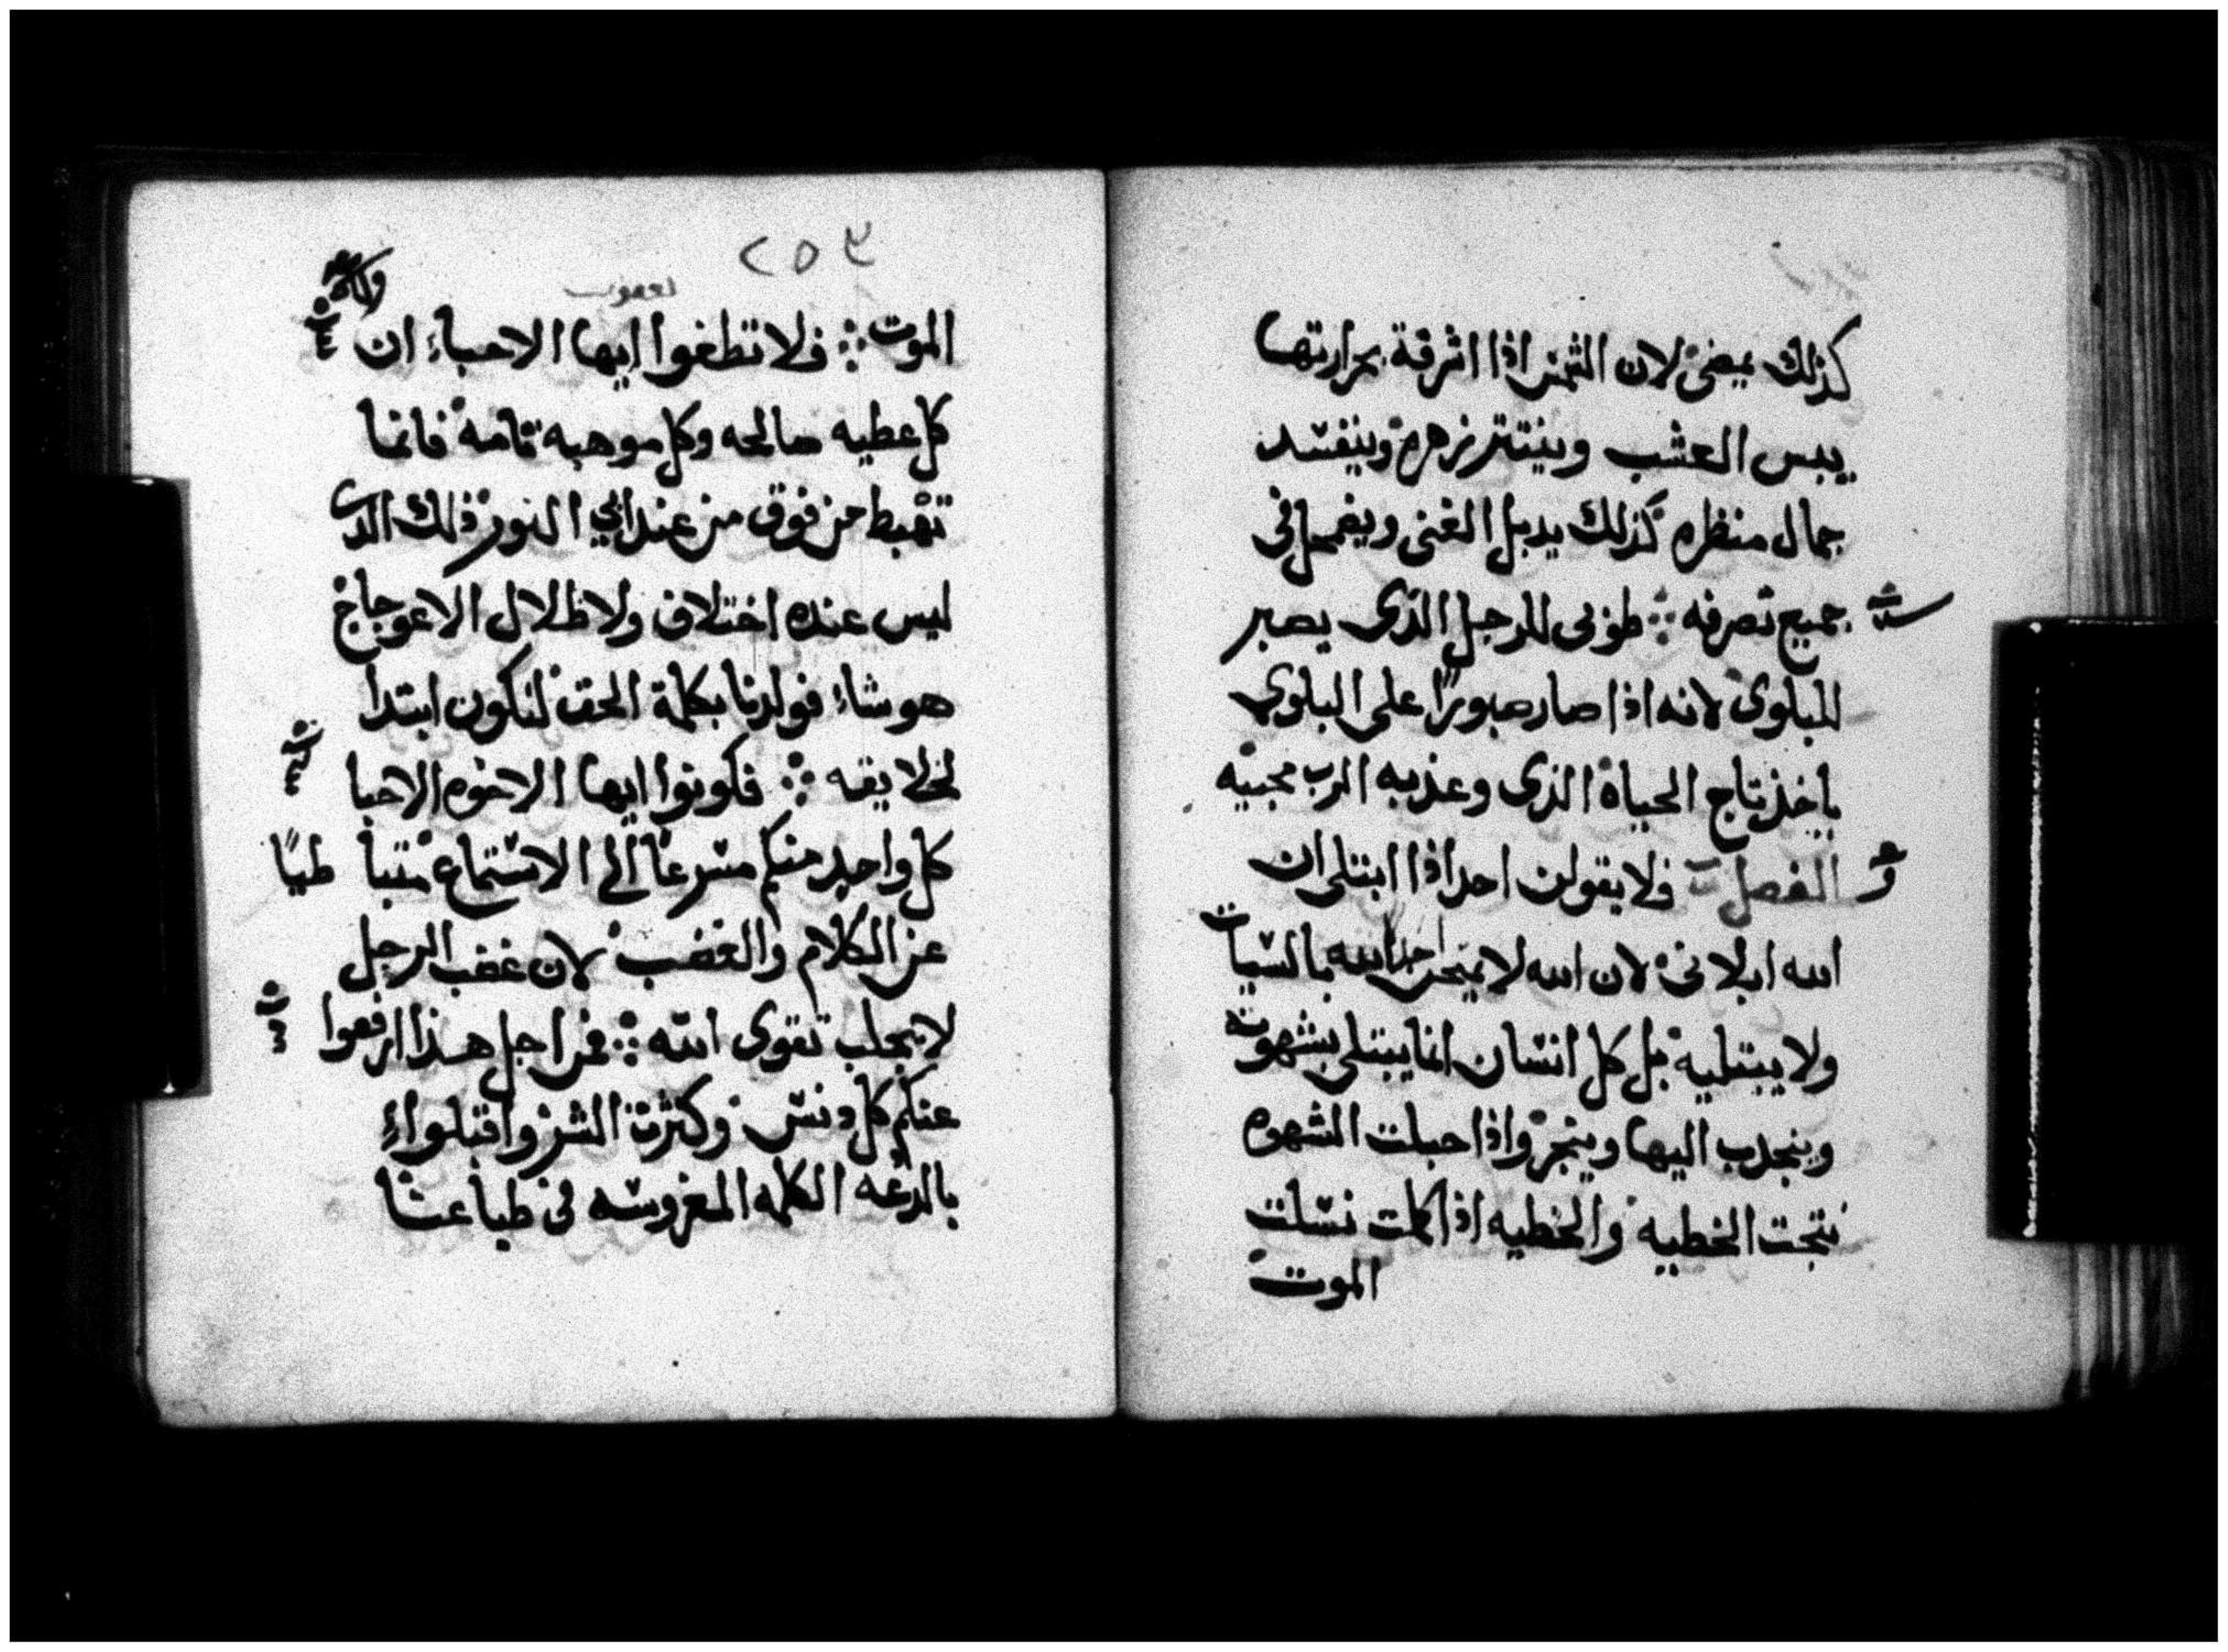 كذلك يمضى لان الشمس اذا اشرقة بحرارتها
يبس العشب وينتتر زهره وينفسد
جمال منظره كذلك يدبل الغنى ويضمحل فى
جميع تصرفه ⁘ طوبى للرجل الذى يصبر
للبلوى لانه اذا صار صبورًا على البلوي
ياخذ تاج الحياة الذى وعد به الرب محبيه
الفصل فلا يقولن احد اذا ابتلى ان
الله ابلانى لان الله لا يمتحن احدا الله بالسيات
ولا يبتليه بل كل انسان انما يبتلى بشهوته
وينجدب اليها وينجر واذا حبلت الشهوه
نتجت الخطيه والخطيه اذا كملت نسلت
الموت
٢٥٣
يعقوب
الموت ⁘ فلا تطغوا ايها الاحباء ان
كل عطيه صالحه وكل موهبه تامه فانما
تهبط من فوق من عند ابي النور ذلك الدى
ليس عنده اختلاف ولا ظلال الاعوجاج
هو شاء فولدنا بكلمة الحق لنكون ابتدا
لخلايقه ⁘ فكونوا ايها الاخوه الاحبا
كل واحد منكم مسرعًا الى الاستماع متبا طيًا
عن الكلام والغضب لان غضب الرجل
لا يجلب تقوى الله ⁘ فمن اجل هذا ارفعوا
عنكم كل دنس وكثرة الشر واقبلوا
بالدعه الكلمه المغروسه فى طباعنا